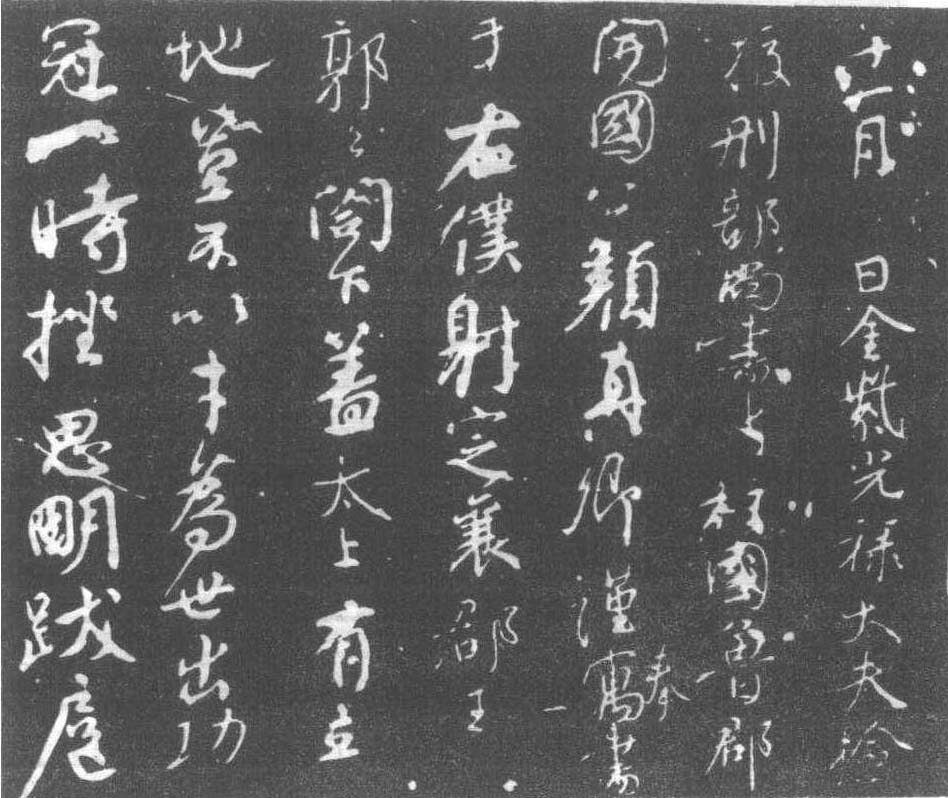 十一月 日金紫光祿大夫檢
校刑部尚書上柱國魯郡
開國公顏真卿謹奉寓書
于右僕射定襄郡王
郭公閤下蓋太上有立
地豈不以才為世出功
冠一時挫思明跋扈